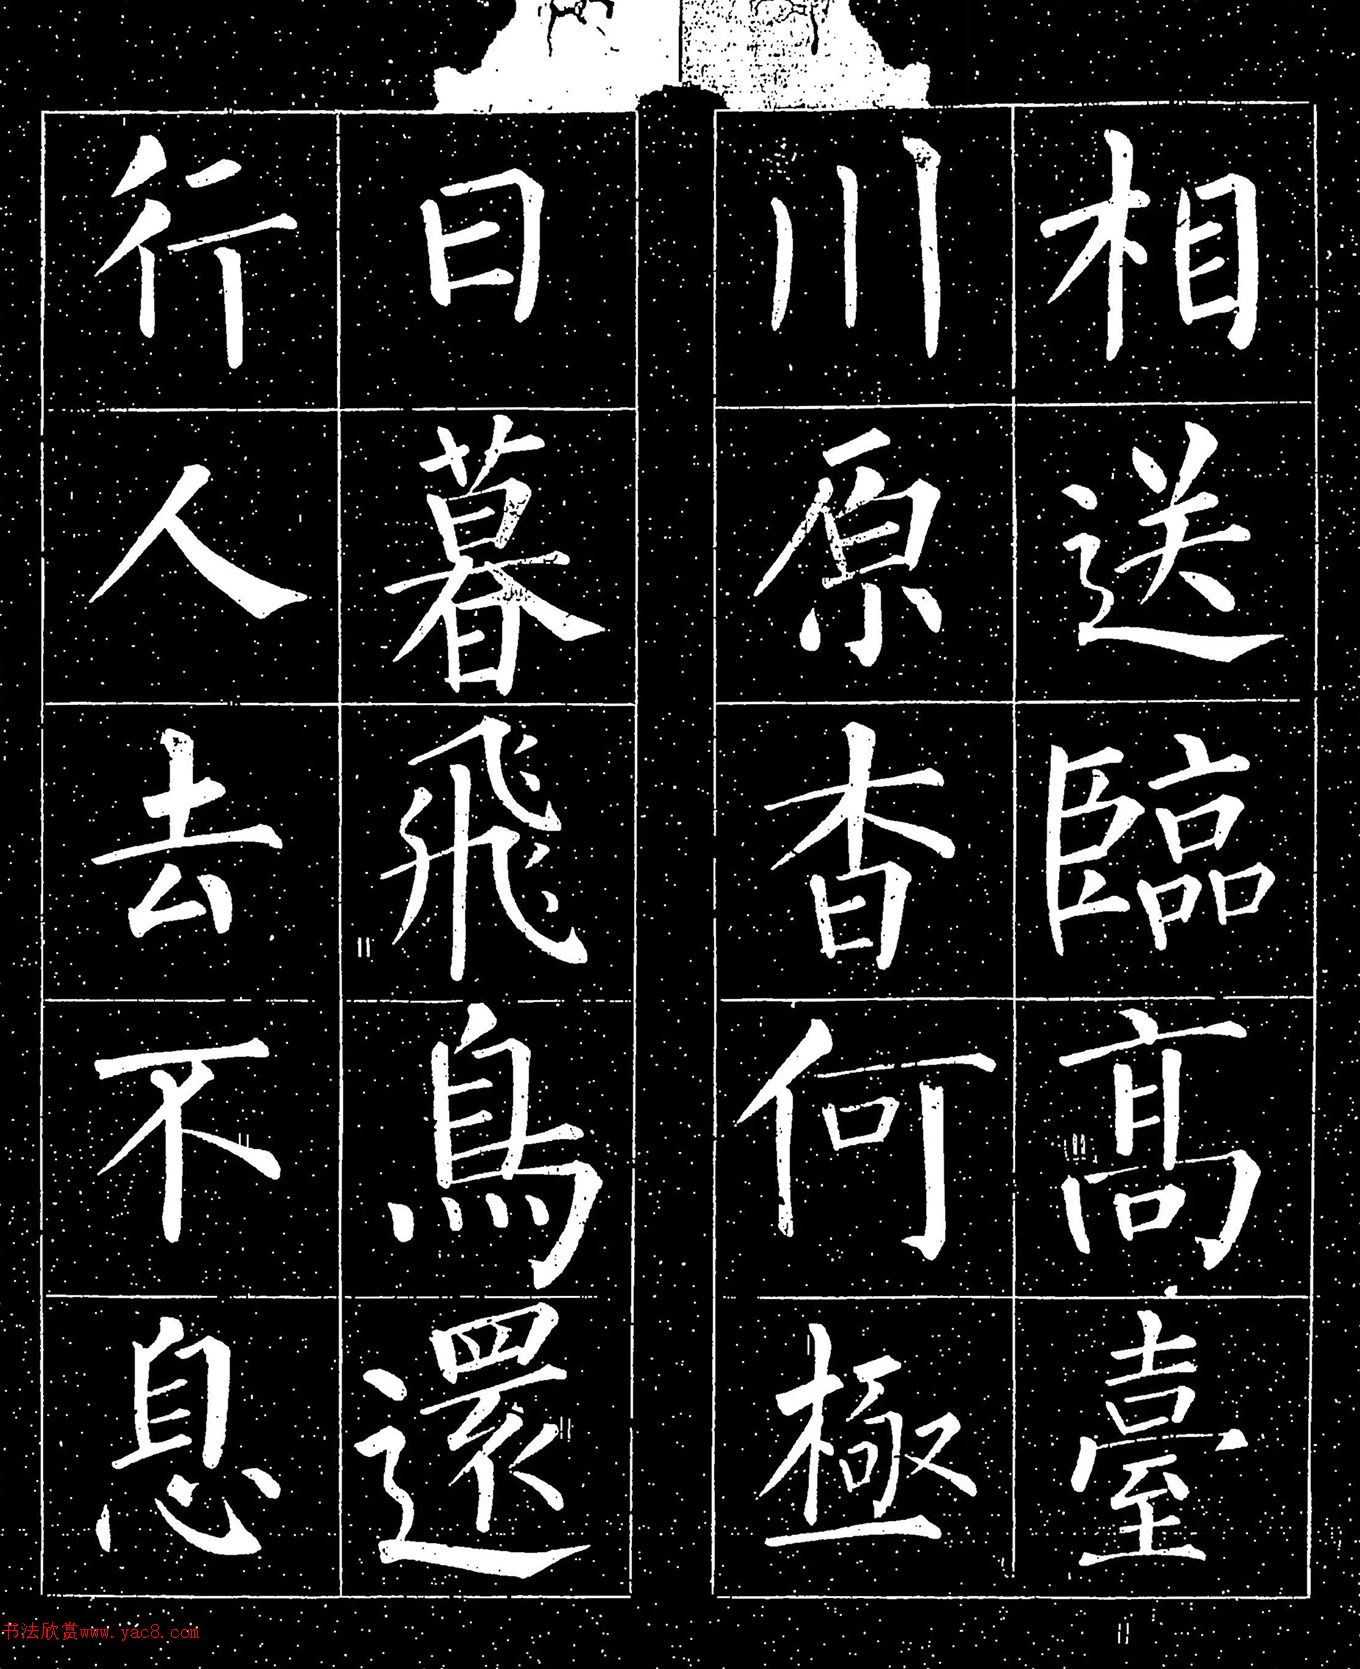 相送臨高臺
川原杳何極
日暮飛鳥還
行人去不息
书法欣赏www.yac8.com